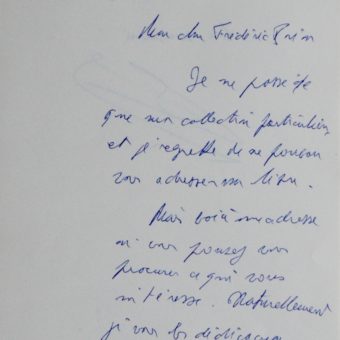 Mon cher Frédéric
Je ne possède
que ma collection particulière
et je regrette de ne pouvoir
vous adresser un livre.
Mais voici une adresse
où vous pouvez vous
procurer ce qui vous
intéresse. Naturellement
je vous les dédicacerai